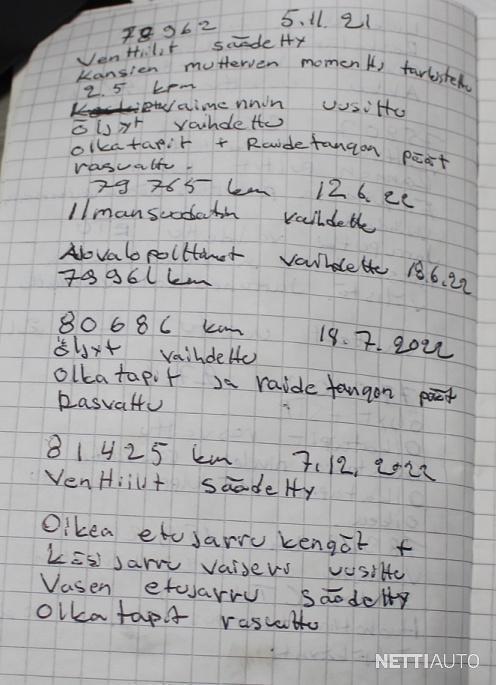 78962 5.11.21
Venttiilit säädetty
Kansien mutterien momentti tarkistettu
2.5 kpm
vaimennin uusittu
öljyt vaihdettu
olkatapit + Raidetangon päät
rasvattu.
79 765 km 12 6. 22
Ilmansuodatin vaihdettu
Ajovalopolttimot vaihdettu 18.6.22
79961 km
80686 km 18.7.2022
öljyt vaihdettu
Olkatapit ja raidetangon päät
Rasvattu
81425 km 7.12.2022
Venttiilit säädetty
Oikea etujarru kengät +
käsijarru vaijeri uusittu
Vasen etujarru säädetty
Olkatapit rasvattu
NETTIAUTO